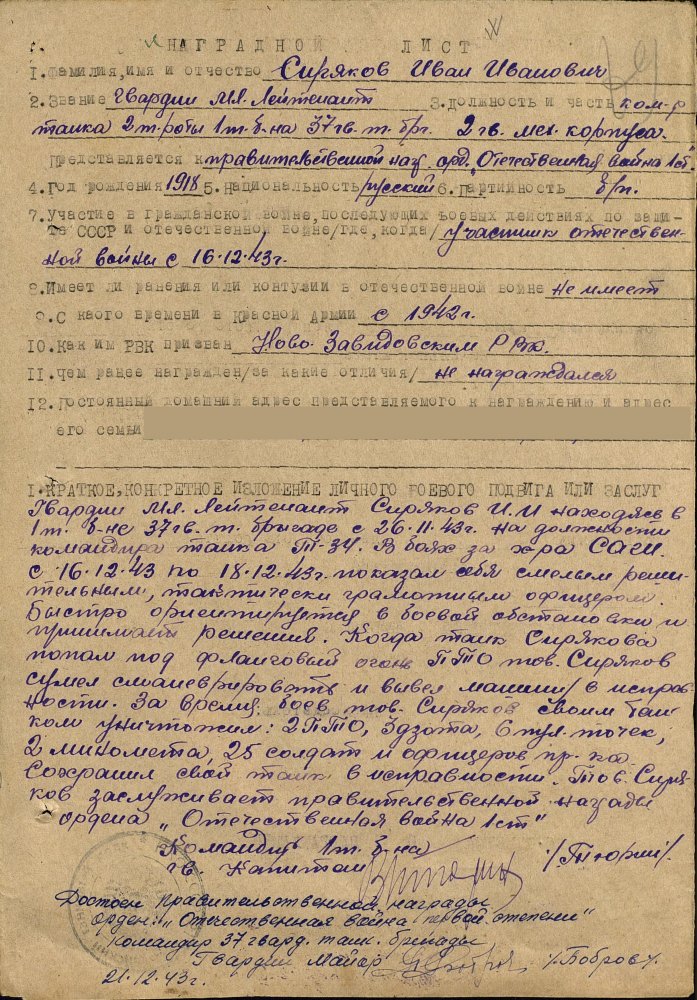 НАГРАДНОЙ ЛИСТ
1. Фамилия, имя и отчество Сиряков Иван Иванович
2. Звание Гвардии Мл. Лейтенант 3. Должность и часть ком-р
танка 2 т. роты 1 т. б-на 37 гв. т. бр. 2 гв. мех. корпуса.
Представляется к правительственной наг. орд. „Отечественная война 1 ст."
4. Год рождения 1918 5. Национальность русский 6. Партийность б/п.
7. Участие в гражданской войне, последующих боевых действиях по защи-
те СССР и отечественной войне/где, когда/ участник отечествен-
ной войны с 16.12.43г.
8. Имеет ли ранения или контузии в отечественной войне не имеет
9. С каого времени в Красной Армии с 1942г.
10. Каким РВК призван Ново-Завидовским РВК.
11. Чем ранее награжден/за какие отличия/ не награждался
12. Постоянный домашний адрес представляемого к награждению и адрес
его семьи
1. КРАТКОЕ, КОНКРЕТНОЕ ИЗЛОЖЕНИЕ ЛИЧНОГО БОЕВОГО ПОДВИГА ИЛИ ЗАСЛУГ
Гвардии Мл. Лейтенант Сиряков И.И находясь в
1 т. б-не 37 гв. т. бригаде с 26.11.43г. на должности
командира танка Т-34. В боях за х-ра САГИ.
с 16.12.43 по 18.12.43г. показал себя смелым, реши-
тельным, тактически грамотным офицером.
Быстро ориентируется в боевой обстановки и
принимает решения. Когда танк Сирякова
попал под фланговый огонь ПТО тов. Сиряков
сумел сманеврировать и вывел машину в исправ
ности. За время боев тов. Сиряков своим тан
ком уничтожил: 2 ПТО, 3 дзота, 6 пул. точек,
2 миномета, 25 солдат и офицеров пр-ка.
Сохранил свой танк в исправности. Тов. Сиря-
ков заслуживает правительственной награды
ордена „Отечественная война 1 ст"
Командир 1 т. б-на
гв. Капитан /Тюрин/
Достоен правительственной награды
орден: „Отечественная война первой степени"
Командир 37 гвард. танк. бригады
Гвардии Майор /Бобров/.
21.12.43г.